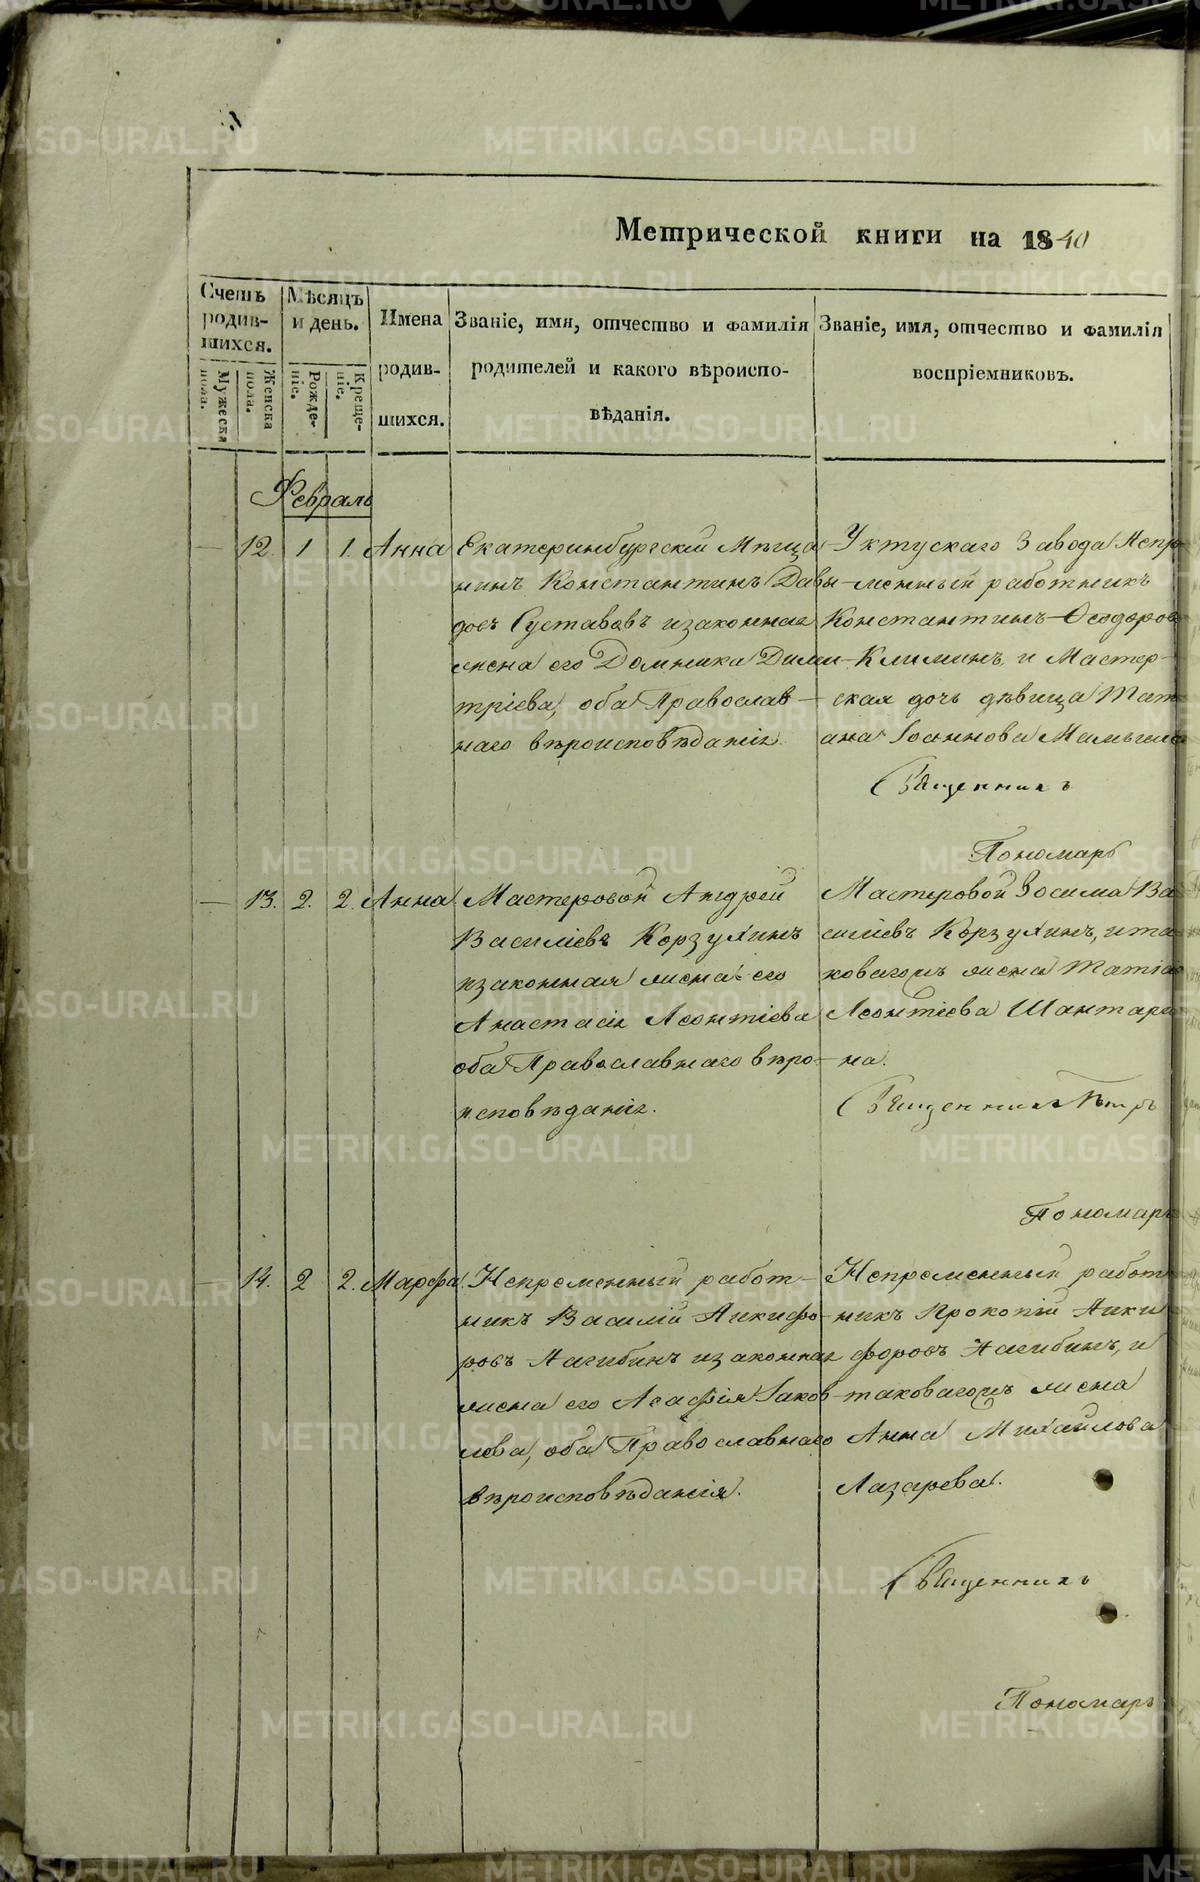 Метрической книги на 1840
Счетъ родив-шихся.
Мужеска пола.
Женска пола.
Мѣсяцъ и день.
Рожде-ніе.
Креще-ніе.
Имена родив-шихся.
Званіе, имя, отчество и фамилія
родителей и какого вѣроиспо-
вѣданія.
Званіе, имя, отчество и фамилія
воспріемниковъ.
Февраль
12. 1 1. Анна
Екатеринбургскій Мѣща-
нинъ Константинъ Давы-
довъ и законная
жена его Домника Дими-
тріева, оба Православ-
наго вѣроисповѣданія.
Уктускаго Завода Непре-
менный работникъ
Константинъ Ѳеодоров
Климинъ и Мастер-
ская дочь дѣвица Тать
ана Іоаннова
Священникъ
Пономарь
13. 2. 2. Анна
Мастеровой Андрей
Василіевъ Корзухинъ
и законная жена его
Анастасія Леонтіева
оба Православнаго вѣро-
исповѣданія.
Мастеровой Зосима Ва
силіевъ Корзухинъ, и та
коваго жъ жена
Леонтіева Шантари
на.
Священникъ Петръ
Пономарь
14. 2 2. Марфа
Непременный работ-
никъ Василій Никифо-
ровъ Нагибинъ и законная
жена его Агафія Іаков-
лева, оба Православнаго
вѣроисповѣданія.
Непременный работ
никъ Прокопій Ники
форовъ Нагибинъ, и
таковаго жъ жена
Анна Михайлова
Лазарева.
Священникъ
Пономарь
METRIKI.GASO-URAL.RU